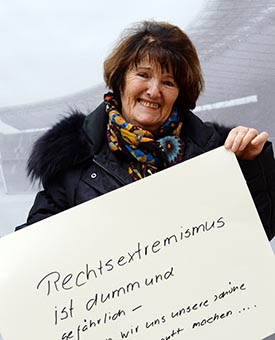 Rechtsextremismus
ist dumm und
gefährlich –
wir uns unsere schöne
machen ....